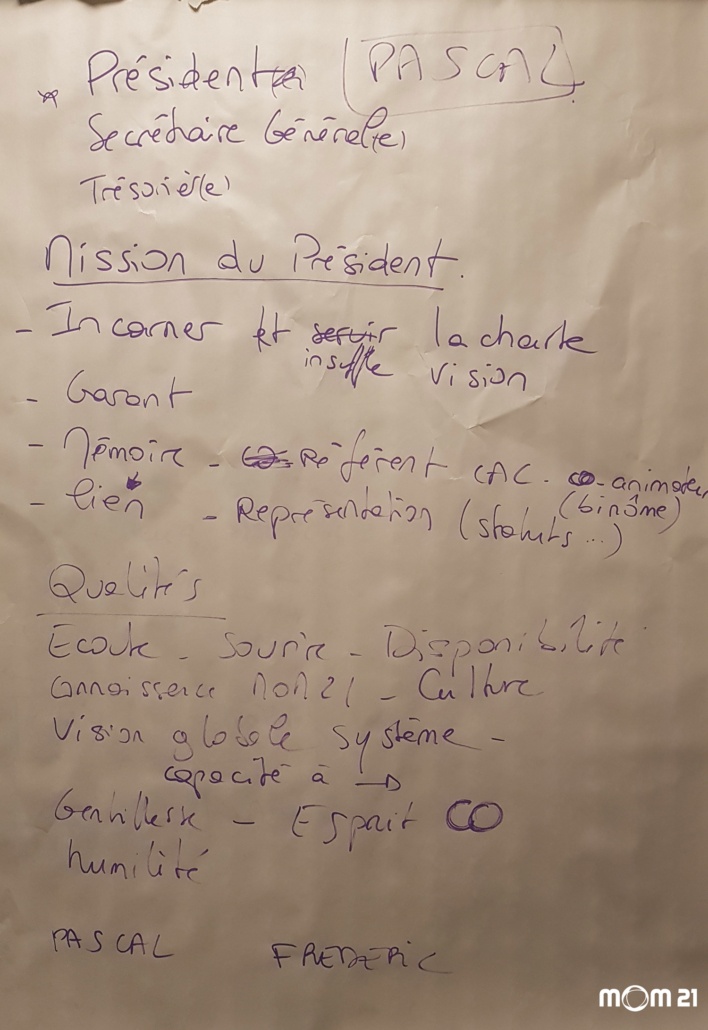 * Président(e) PASCAL
Secrétaire Générale(e)
Trésorièr(e)
Mission du Président.
- Incarner et servir la charte
insuffle vision
- Garant
- Mémoire - Référent CAC - CO-animateur
- lien - Représentation (statuts...) (binôme)
Qualités
Ecoute - Sourire - Disponibilité
Connaissance MOM21 - Culture
Vision globale système -
capacité à →
Gentillesse - Esprit CO
humilité
PASCAL FREDERIC
MOM 21